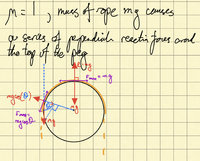 μ = 1 , mass of rope mg causes
a series of perpendicular reaction forces around
the top of the peg
Fmax = mg
mg
mgcos(θ)
θ
Fmax =
mgcosθ
mg